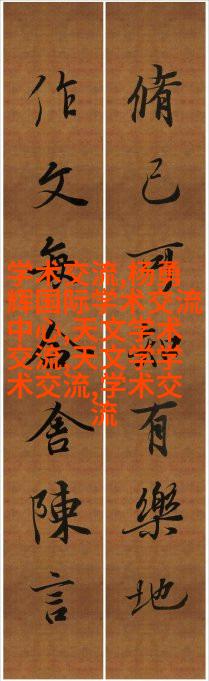 脩己可有樂地
作文每舍陳言
学术交流,杨勇
辉国际学术交流
中心,天文学术
交流,天文学学
术交流,学术交
流